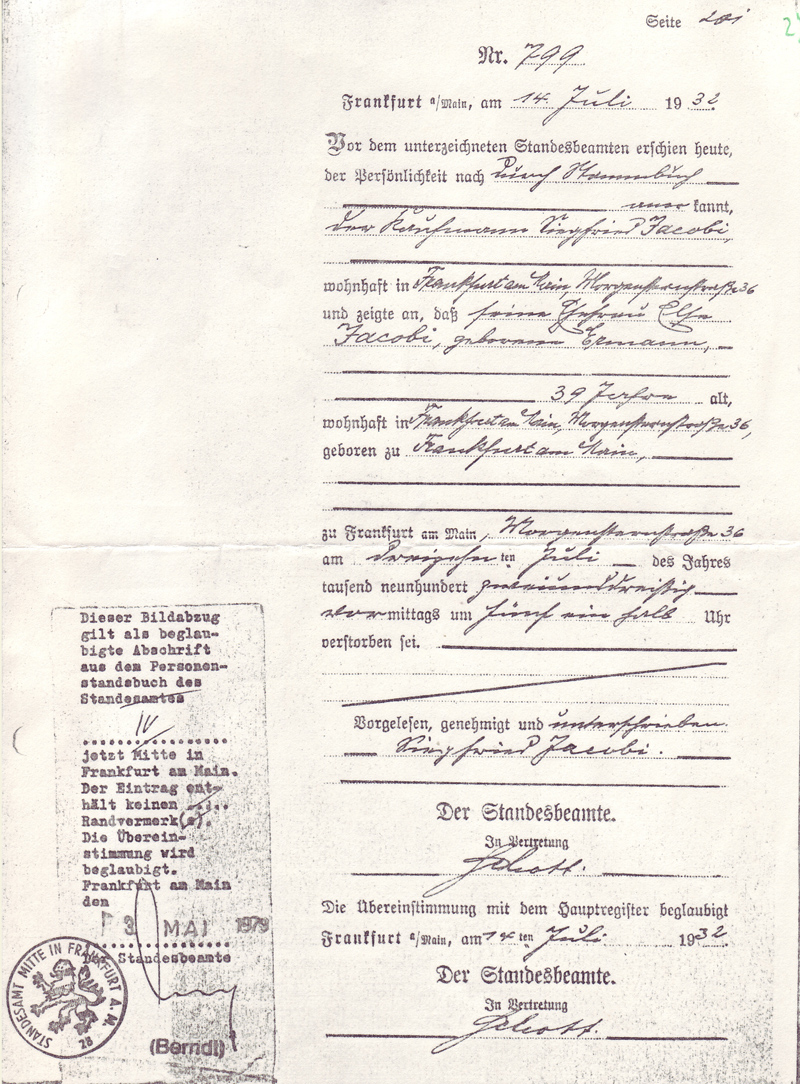 Seite 201
Nr. 799
Frankfurt a/Main, am 14. Juli 1932
Vor dem unterzeichneten Standesbeamten erschien heute,
der Persönlichkeit nach durch Stammbuch
aner kannt,
der Kaufmann Siegfried Jacobi,
wohnhaft in Frankfurt am Main, Morgensternstraße 36
und zeigte an, daß seine Ehefrau Else
Jacobi, geborene Ermann,
39 Jahre alt,
wohnhaft in Frankfurt am Main, Morgensternstraße 36,
geboren zu Frankfurt am Main,
zu Frankfurt am Main, Morgensternstraße 36
am dreizehn ten Juli des Jahres
tausend neunhundert zweiunddreissig
vor mittags um fünf ein halb Uhr
verstorben sei.
Vorgelesen, genehmigt und unterschrieben.
Siegfried Jacobi.
Der Standesbeamte.
In Vertretung
Schott.
Die Übereinstimmung mit dem Hauptregister beglaubigt
Frankfurt a/Main, am 14 ten Juli 1932
Der Standesbeamte.
In Vertretung
Schott.
Dieser Bildabzug
gilt als beglau-
bigte Abschrift
aus dem Personen-
standsbuch des
Standesamtes
IV
jetzt Mitte in
Frankfurt am Main.
Der Eintrag ent-
hält keinen ....
Randvermerk(e).
Die Überein-
stimmung wird
beglaubigt.
Frankfurt am Main
den
3. MAI 1979
Der Standesbeamte
(Berndl)
STANDESAMT MITTE IN FRANKFURT A. M.
28